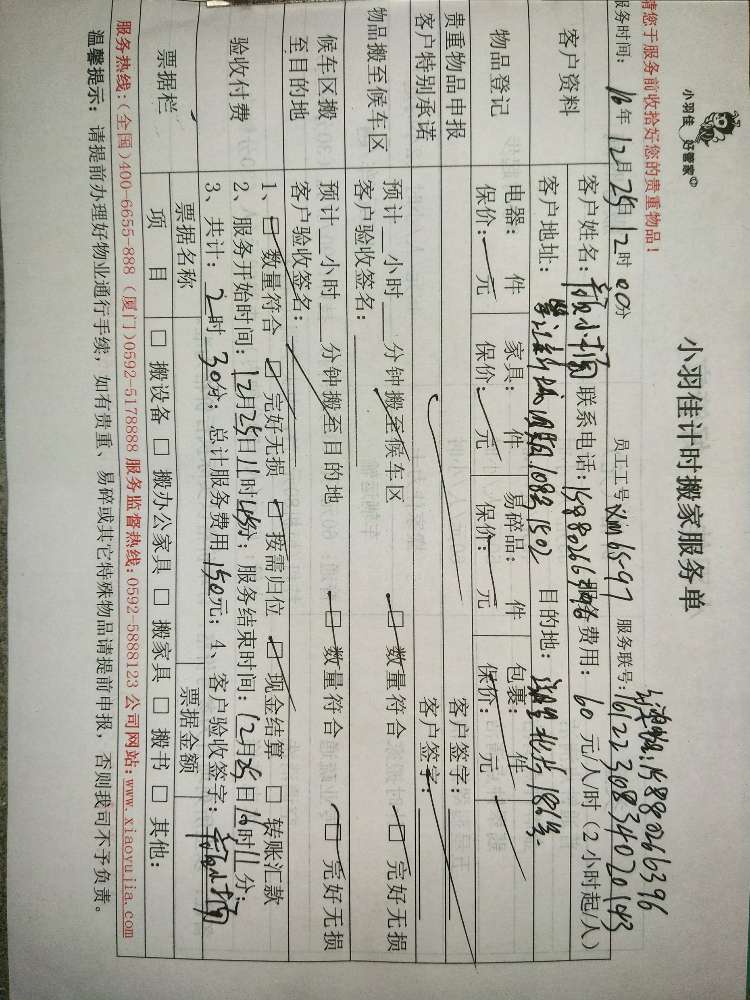 小羽佳 好管家
小羽佳计时搬家服务单
请您于服务前收拾好您的贵重物品!
服务时间: 16年12月25日12时00分 员工工号 XM6597 服务联号: 1612230834020143
15880266396
客户资料
客户姓名: 联系电话: 15880266396 服务费用: 60元/人/时 (2小时起/人)
客户地址: 108号1502 目的地: 186号
物品登记
电器: 件 家具: 件 易碎品: 件 包裹: 件
保价: 元 保价: 元 保价: 元 保价: 元
贵重物品申报 客户签字:
客户特别承诺 客户签字:
物品搬至候车区
预计 小时 分钟搬至候车区 □数量符合 □完好无损
客户验收签名:
候车区搬至目的地
预计 小时 分钟搬至目的地 □数量符合 □完好无损
客户验收签名:
验收付费
1、□数量符合 □完好无损 □按需归位 □现金结算 □转账汇款
2、服务开始时间: 12月25日11时45分; 服务结束时间: 12月25日16时11分;
3、共计: 2时30分; 总计服务费用150元; 4、客户验收签字:
票据栏
票据名称 票据金额
项 目 □搬设备 □搬办公家具 □搬家具 □搬书 □其他:
服务热线:(全国)400-6655-888 (厦门)0592-5178888 服务监督热线:0592-5888123 公司网站:www.xiaoyujia.com
温馨提示: 请提前办理好物业通行手续, 如有贵重、易碎或其它特殊物品请提前申报, 否则我司不予负责。